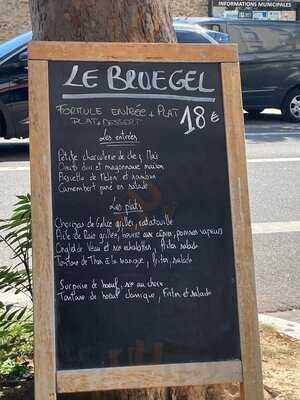 INFORMATIONS
MUNICIPALES
LE BRUEGEL
FORMULE ENTRÉE + PLAT
PLAT + DESSERT
18€
Les entrées
Petite charcuterie de chez
Oeufs durs et mayonnaise maison
Assiette de Melon et jambon
Camembert pané en salade
Les plats
Chorizos grillés, ratatouille
Aile de Raie grillée, beurre aux câpres, pommes vapeurs
de Veau et son salade
Tartare de Thon à la mangue, frites, salade
Surprise de boeuf, au choix
Tartare de boeuf classique, Frites et salade